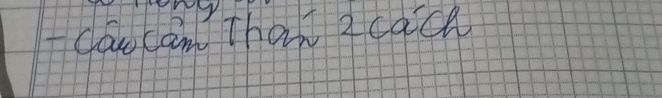 - Câu cảm Thán 2 cách